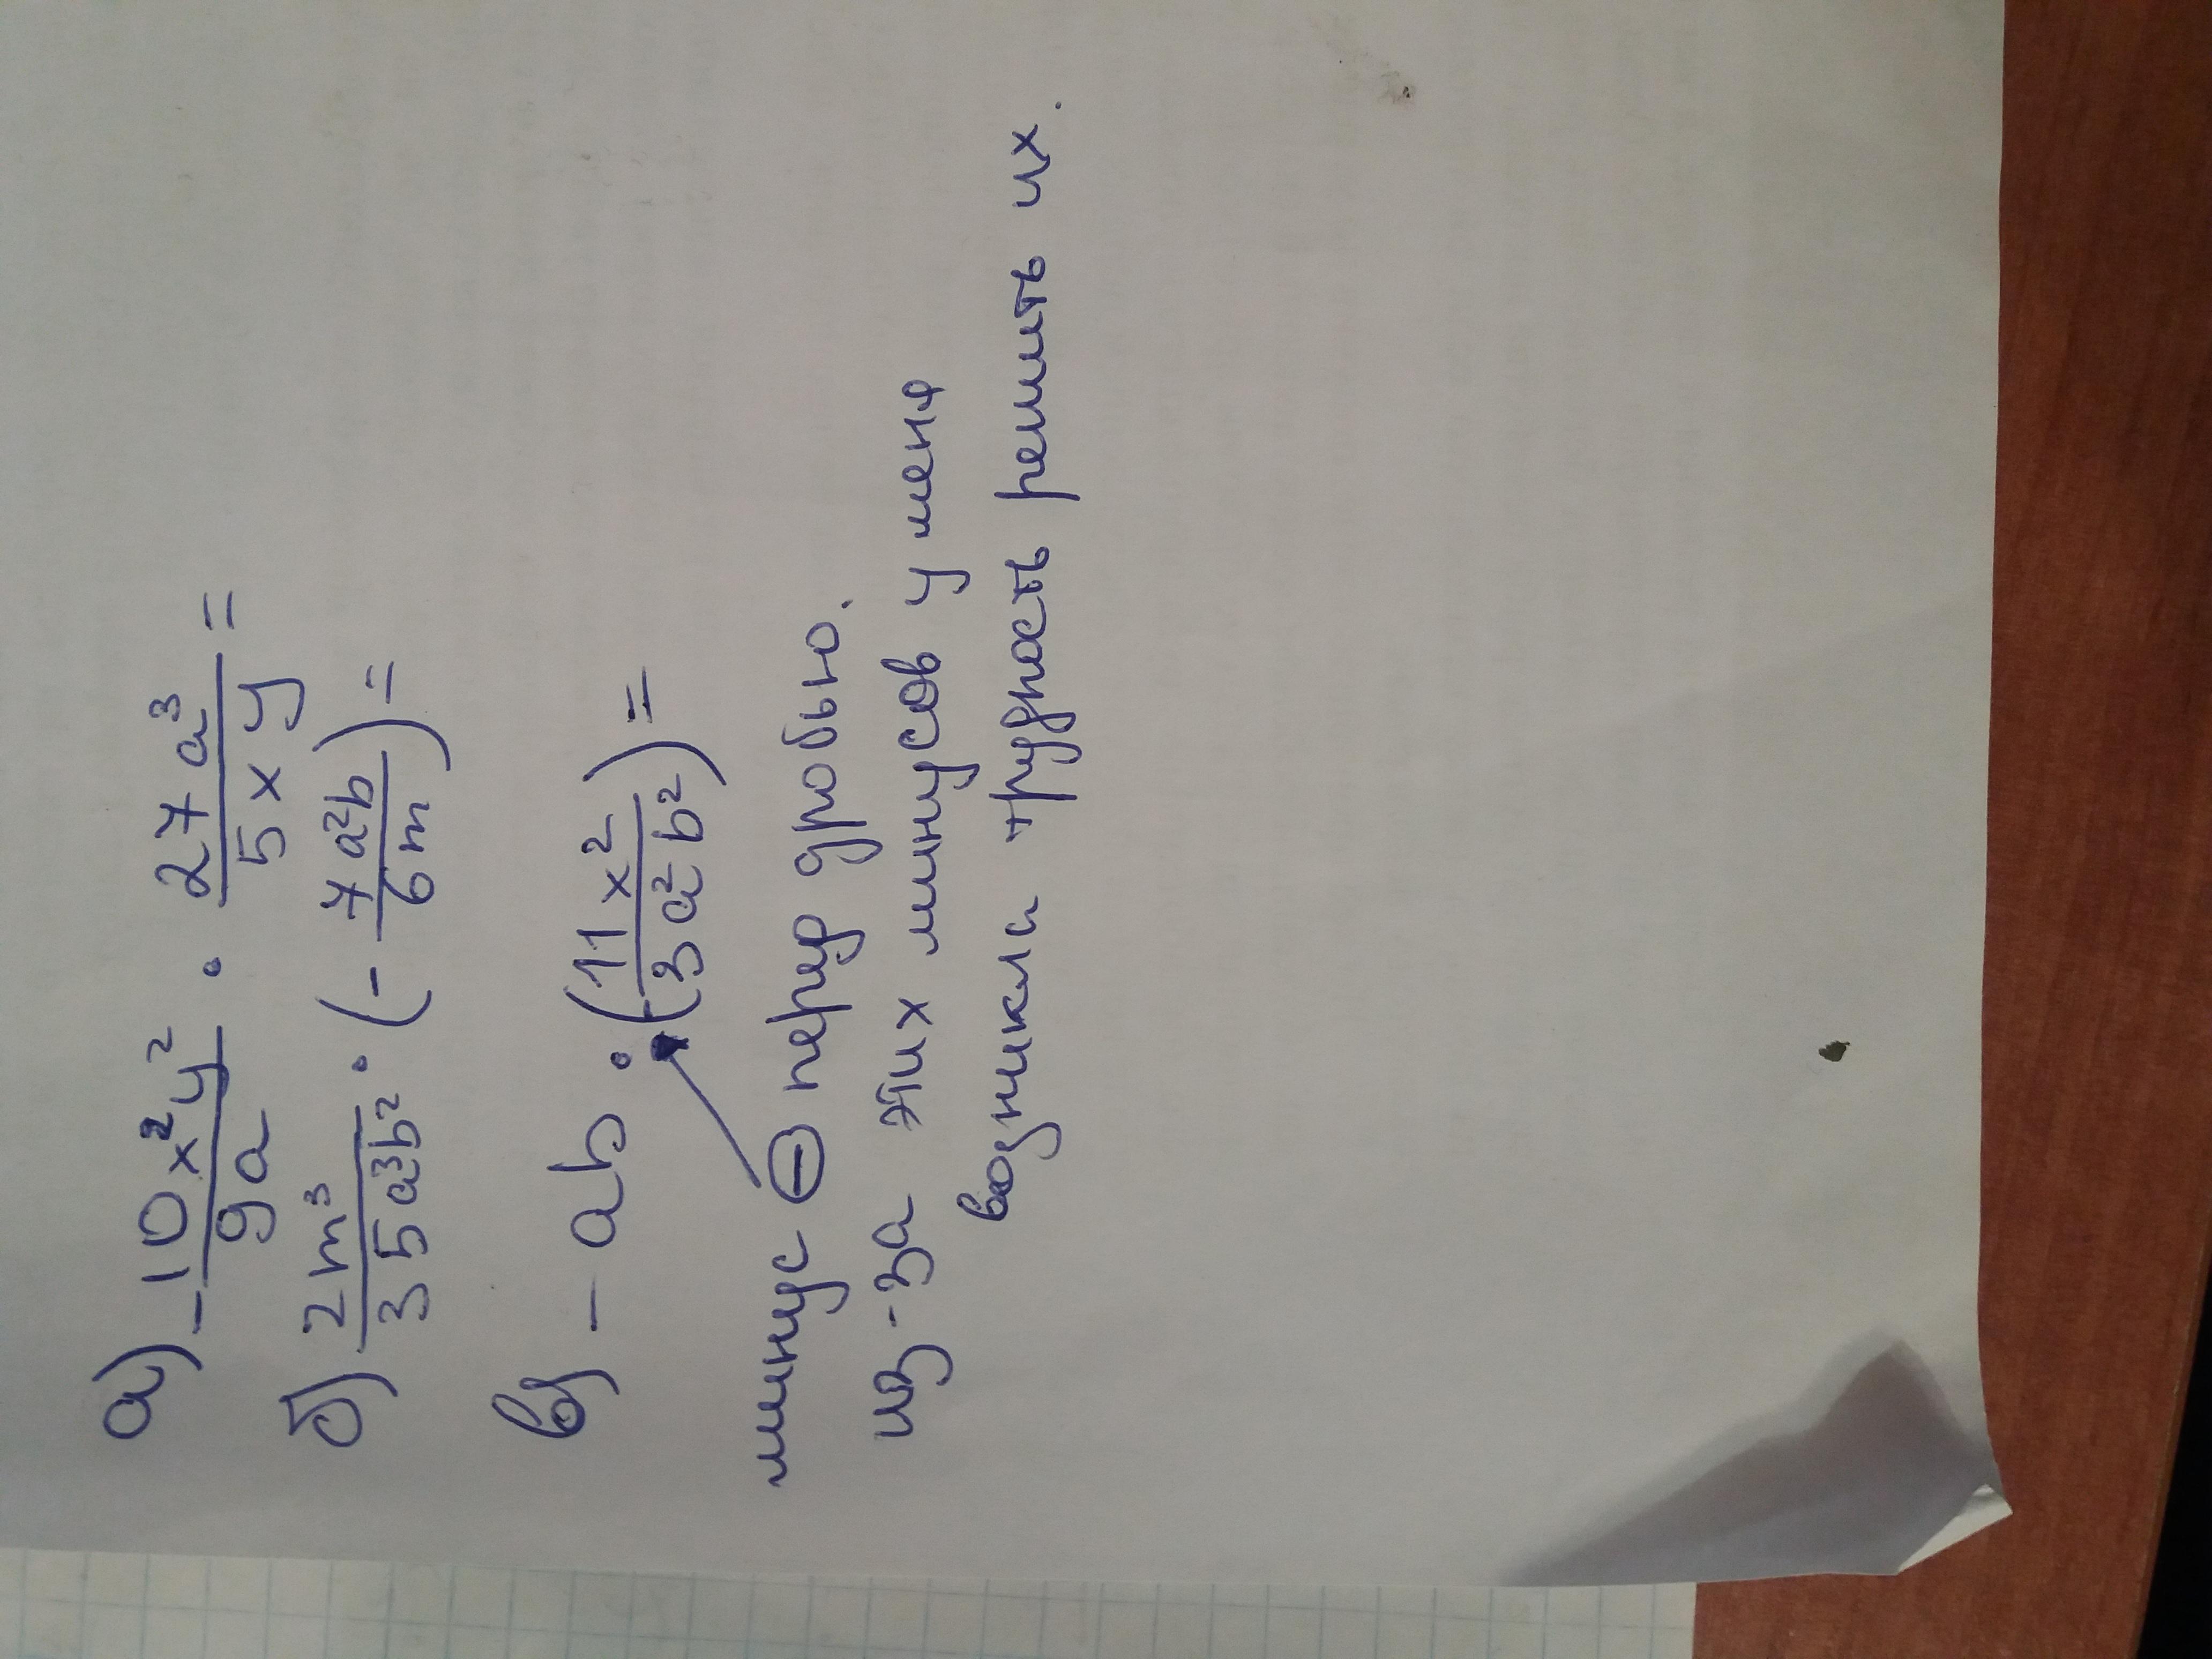 а) - 10x²y²/9a · 27a³/5xy =
б) 2m³/35a³b² · (- 7a²b/6m) =
в) - ab · (11x²/3a²b²) =
минус ⊖ перед дробью.
из-за этих минусов у меня
возникла трудность решить их.